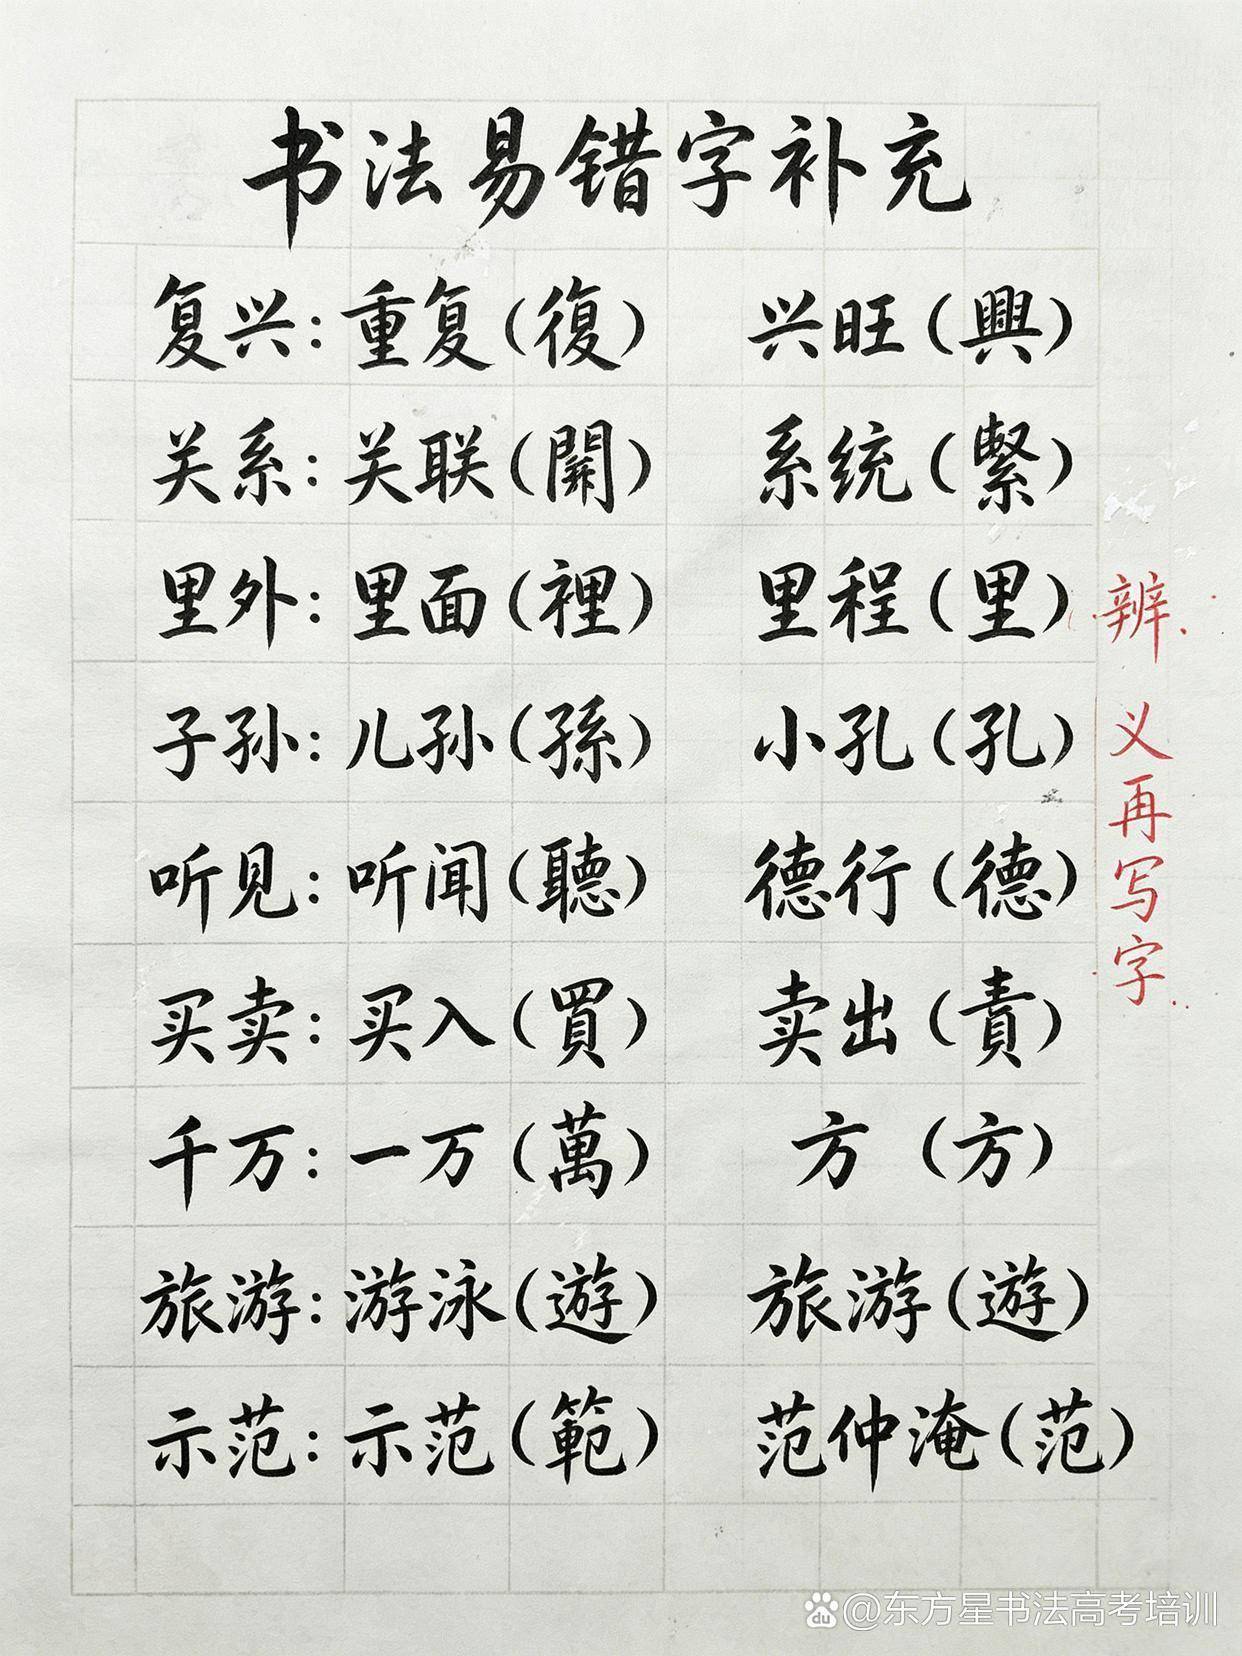 书法易错字补充
复兴：重复（復） 兴旺（興）
关系：关联（開） 系统（繄）
里外：里面（裡） 里程（里）
子孙：儿孙（孫） 小孔（孔）
听见：听闻（聽） 德行（德）
买卖：买入（買） 卖出（責）
千万：一万（萬） 方（方）
旅游：游泳（遊） 旅游（遊）
示范：示范（範） 范仲淹（范）
辨义再写字
du @东方星书法高考培训